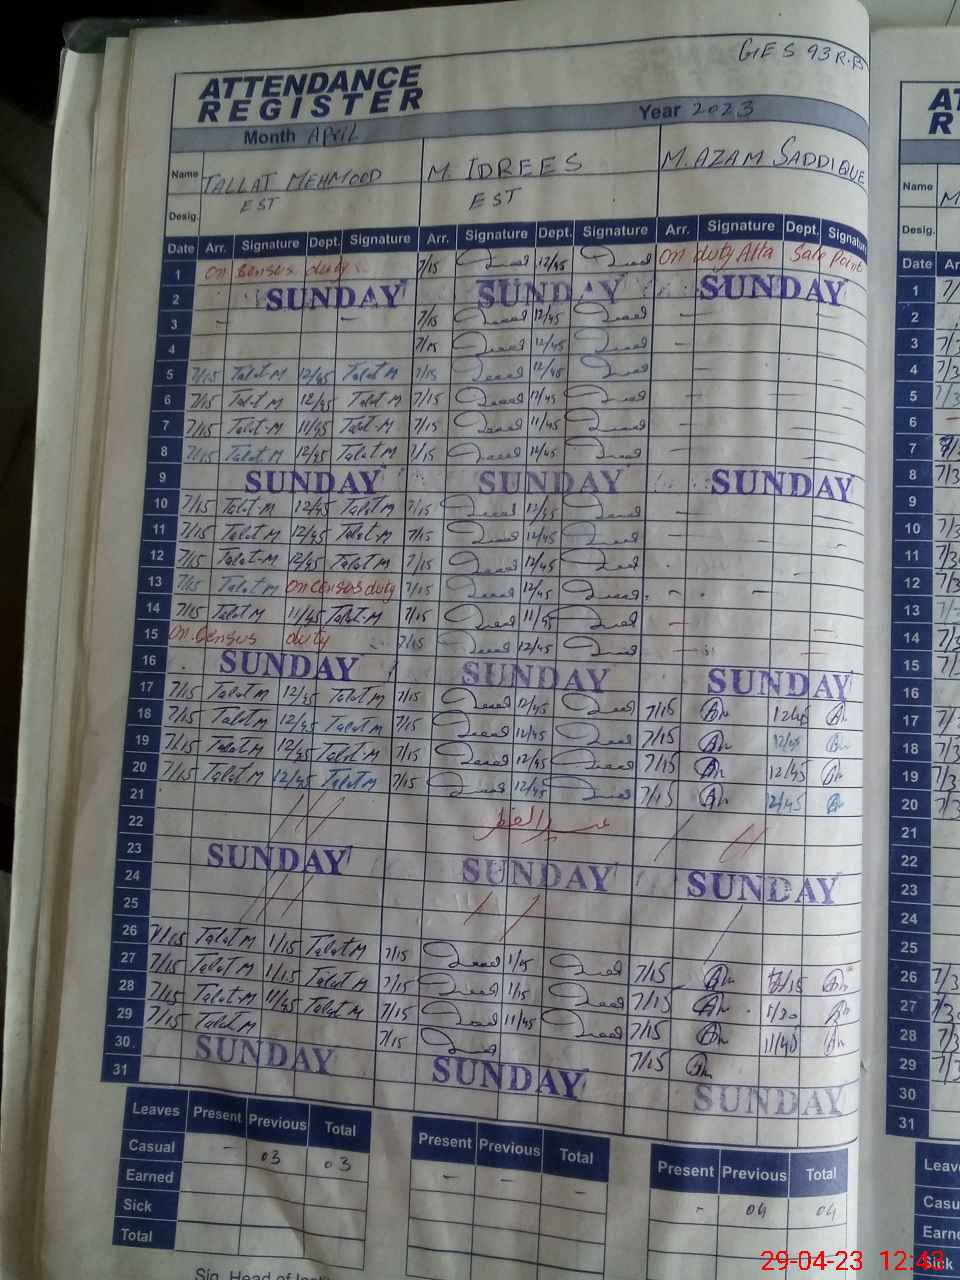 GES 93 R.B
ATTENDANCE
REGISTER
Month April Year 2023
Name TALLAT MEHMOOD M. IDREES M. AZAM SADDIQUE
Desig. EST EST
Date Arr. Signature Dept. Signature Arr. Signature Dept. Signature Arr. Signature Dept. Signature
1 On Census duty 7/15 12/45 On duty Atta Sale Point
2 SUNDAY SUNDAY SUNDAY
3 - - 7/15 12/45 -
4 7/15 12/45 -
5 7/15 Talat-M 12/45 Talat M 7/15 12/45
6 7/15 Talat M 12/45 Talat M 7/15 11/45 - -
7 7/15 Talat-M 11/45 Talat-M 7/15 11/45 -
8 7/15 Talat M 12/45 Talat M 7/15 12/45 - -
9 SUNDAY SUNDAY SUNDAY
10 7/15 Talat-M 12/45 Talat M 7/15 12/45 -
11 7/15 Talat M 12/45 Talat-M 7/15 12/45 -
12 7/15 Talat-M 12/45 Talat M 7/15 12/45 -
13 7/15 Talat M On Census duty 7/15 12/45 - -
14 7/15 Talat M 11/45 Talat-M 7/15 11/45 - -
15 On Census duty 7/15 12/45 - -
16 SUNDAY SUNDAY SUNDAY
17 7/15 Talat M 12/45 Talat M 7/15 12/45 7/15 12/45
18 7/15 Talat M 12/45 Talat M 7/15 12/45 7/15 12/45
19 7/15 Talat M 12/45 Talat-M 7/15 12/45 7/15 12/45
20 7/15 Talat M 12/45 Talat M 7/15 12/45 7/15 12/45
21
22 عيد الفطر
23 SUNDAY SUNDAY SUNDAY
24
25
26 7/15 Talat M 1/15 Talat M 7/15 1/15 7/15 1/15
27 7/15 Talat M 1/15 Talat M 7/15 1/15 7/15 1/20
28 7/15 Talat M 11/45 Talat M 7/15 11/45 7/15 11/45
29 7/15 Talat M 7/15 7/15
30 SUNDAY SUNDAY SUNDAY
31
Leaves Present Previous Total Present Previous Total Present Previous Total
Casual - 03 03 - - - - 04 04
Earned
Sick
Total
Sig. Head of
AT
R
Name M
Desig.
Date Ar
1 7/
2
3 7/3
4 7/3
5 7/3
6 -
7
8 7/3
9
10 7/3
11 7/3
12
13
14 7/3
15 7/3
16
17 7/3
18 7/3
19 7/3
20 7/3
21
22
23
24
25
26 7/3
27 7/3
28 7/3
29 7/3
30
31
Leav
Casu
Earne
Sick
29-04-23 12:43